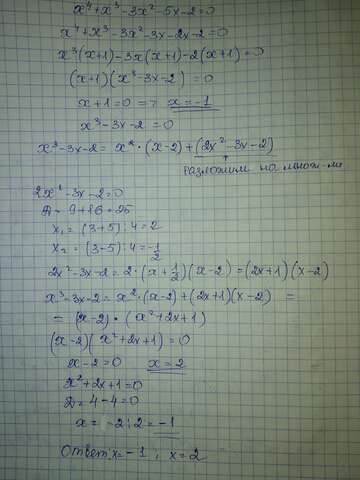 x⁴+x³-3x²-5x-2=0
x⁴+x³-3x²-3x-2x-2=0
x³(x+1)-3x(x+1)-2(x+1)=0
(x+1)(x³-3x-2)=0
x+1=0 => x=-1
x³-3x-2=0
x³-3x-2=x²·(x-2)+(2x²-3x-2)
разложим на множ-ли
2x²-3x-2=0
D=9+16=25
x₁=(3+5):4=2
x₂=(3-5):4=-1/2
2x²-3x-2=2·(x+1/2)(x-2)=(2x+1)(x-2)
x³-3x-2=x²·(x-2)+(2x+1)(x-2)=
=(x-2)·(x²+2x+1)
(x-2)(x²+2x+1)=0
x-2=0 x=2
x²+2x+1=0
D=4-4=0
x=-2:2=-1
Ответ: x=-1; x=2